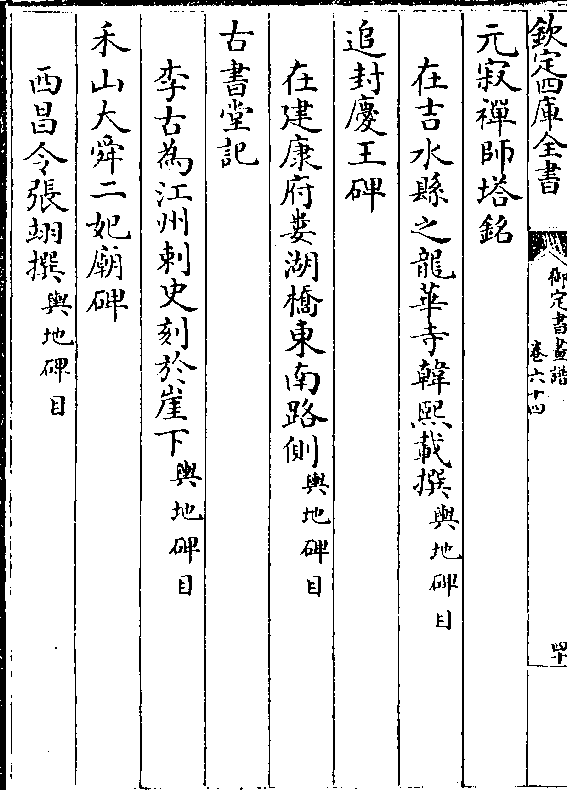 欽定四庫全書
御定書畫譜
卷六十四
元寂禪師塔銘
在吉水縣之龍華寺韓熙載撰輿地碑目
追封慶王碑
在建康府婁湖橋東南路側輿地碑目
古書堂記
李古為江州刺史刻於崖下輿地碑目
禾山大舜二妃廟碑
西昌令張翊撰輿地碑目